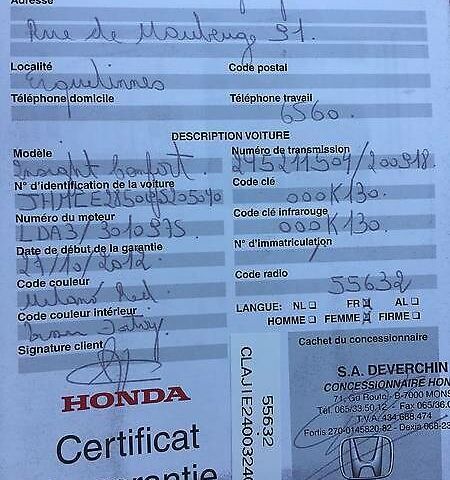 Adresse
Rue de Maubeuge 91.
Localité Code postal
Erquelinnes
Téléphone domicile Téléphone travail
6560.
DESCRIPTION VOITURE
Modèle Numéro de transmission
Insight Comfort. 295211504/200918.
N° d'identification de la voiture Code clé
000K130.
Numéro du moteur Code clé infrarouge
LDA3/3010975 000K130.
Date de début de la garantie N° d'immatriculation
27/10/2012.
Code couleur Code radio
Milano Red 55632
LANGUE: NL ☐ FR ☒ AL ☐
Code couleur intérieur HOMME ☐ FEMME ☒ FIRME ☐
Signature client Cachet du concessionnaire
HONDA
Certificat
garantie
55632
CLAJIE2400324
S.A. DEVERCHIN
CONCESSIONNAIRE HON
71, Gd Route B-7000 MONS
Tél. 065/33.50.12 - Fax 065/36.0
T.V.A. 434.688.474
Fortis 270-0145820-82 - Dexia 068-23